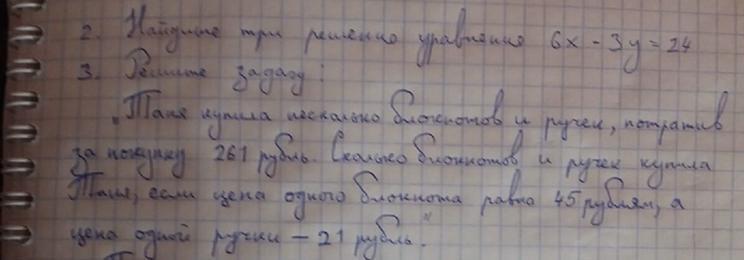 2. Найдите три решения уравнения 6x - 3y = 24
3. Решите задачу:
„Таня купила несколько блокнотов и ручек, потратив
за покупку 261 рубль. Сколько блокнотов и ручек купила
Таня, если цена одного блокнота равна 45 рублям, а
цена одной ручки – 21 рубль."